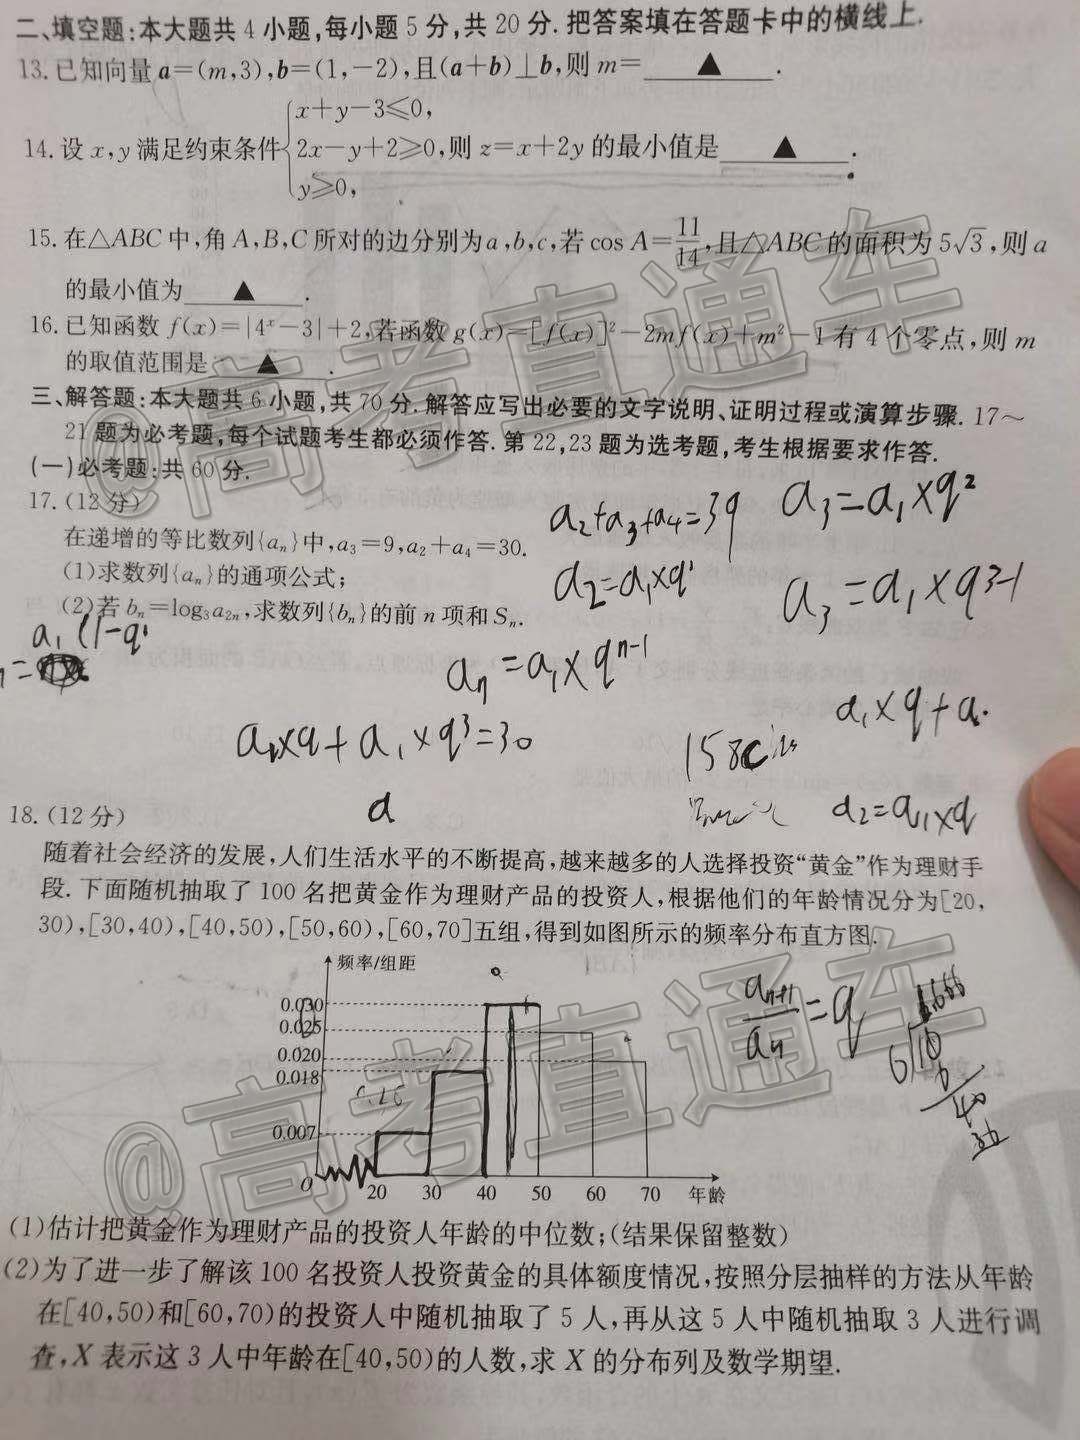 二、填空题:本大题共4小题,每小题5分,共20分.把答案填在答题卡中的横线上.
13.已知向量a=(m,3),b=(1,-2),且(a+b)⊥b,则m=____▲____.
14.设x,y满足约束条件{x+y-3≤0, 2x-y+2≥0, y≥0, 则z=x+2y的最小值是____▲____.
15.在△ABC中,角A,B,C所对的边分别为a,b,c,若cos A=11/14,且△ABC的面积为5√3,则a
的最小值为____▲____.
16.已知函数f(x)=|4ˣ-3|+2,若函数g(x)=[f(x)]²-2mf(x)+m²-1有4个零点,则m
的取值范围是____▲____.
三、解答题:本大题共6小题,共70分.解答应写出必要的文字说明、证明过程或演算步骤.17~
21题为必考题,每个试题考生都必须作答.第22,23题为选考题,考生根据要求作答.
(一)必考题:共60分.
17.(12分)
a₂+a₃+a₄=39
a₃=a₁×q²
在递增的等比数列{aₙ}中,a₃=9,a₂+a₄=30.
(1)求数列{aₙ}的通项公式;
a₂=a₁×q¹
a₃=a₁×q³⁻¹
(2)若bₙ=log₃a₂ₙ,求数列{bₙ}的前n项和Sₙ.
a₁(1-q
aₙ=a₁×qⁿ⁻¹
a₁×q+a₁×q³=30
a₁×q+a
a
a₂=a₁×q
18.(12分)
随着社会经济的发展,人们生活水平的不断提高,越来越多的人选择投资“黄金”作为理财手
段.下面随机抽取了100名把黄金作为理财产品的投资人,根据他们的年龄情况分为[20,
30),[30,40),[40,50),[50,60),[60,70]五组,得到如图所示的频率分布直方图.
频率/组距
0.030
0.025
0.020
0.018
0.007
O 20 30 40 50 60 70 年龄
aₙ₊₁/aₙ=q
(1)估计把黄金作为理财产品的投资人年龄的中位数;(结果保留整数)
(2)为了进一步了解该100名投资人投资黄金的具体额度情况,按照分层抽样的方法从年龄
在[40,50)和[60,70)的投资人中随机抽取了5人,再从这5人中随机抽取3人进行调
查,X表示这3人中年龄在[40,50)的人数,求X的分布列及数学期望.
@高考直通车
@高考直通车